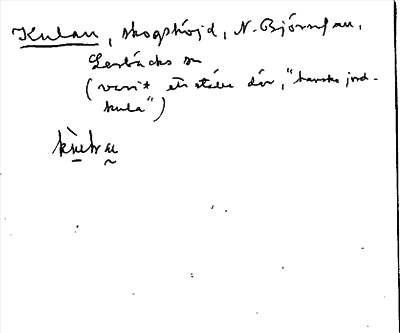 Kulan, skogshöjd, N. Björnfan,
Lerbäcks sn
(varit ett ställe där, "kanske jord-
kula")